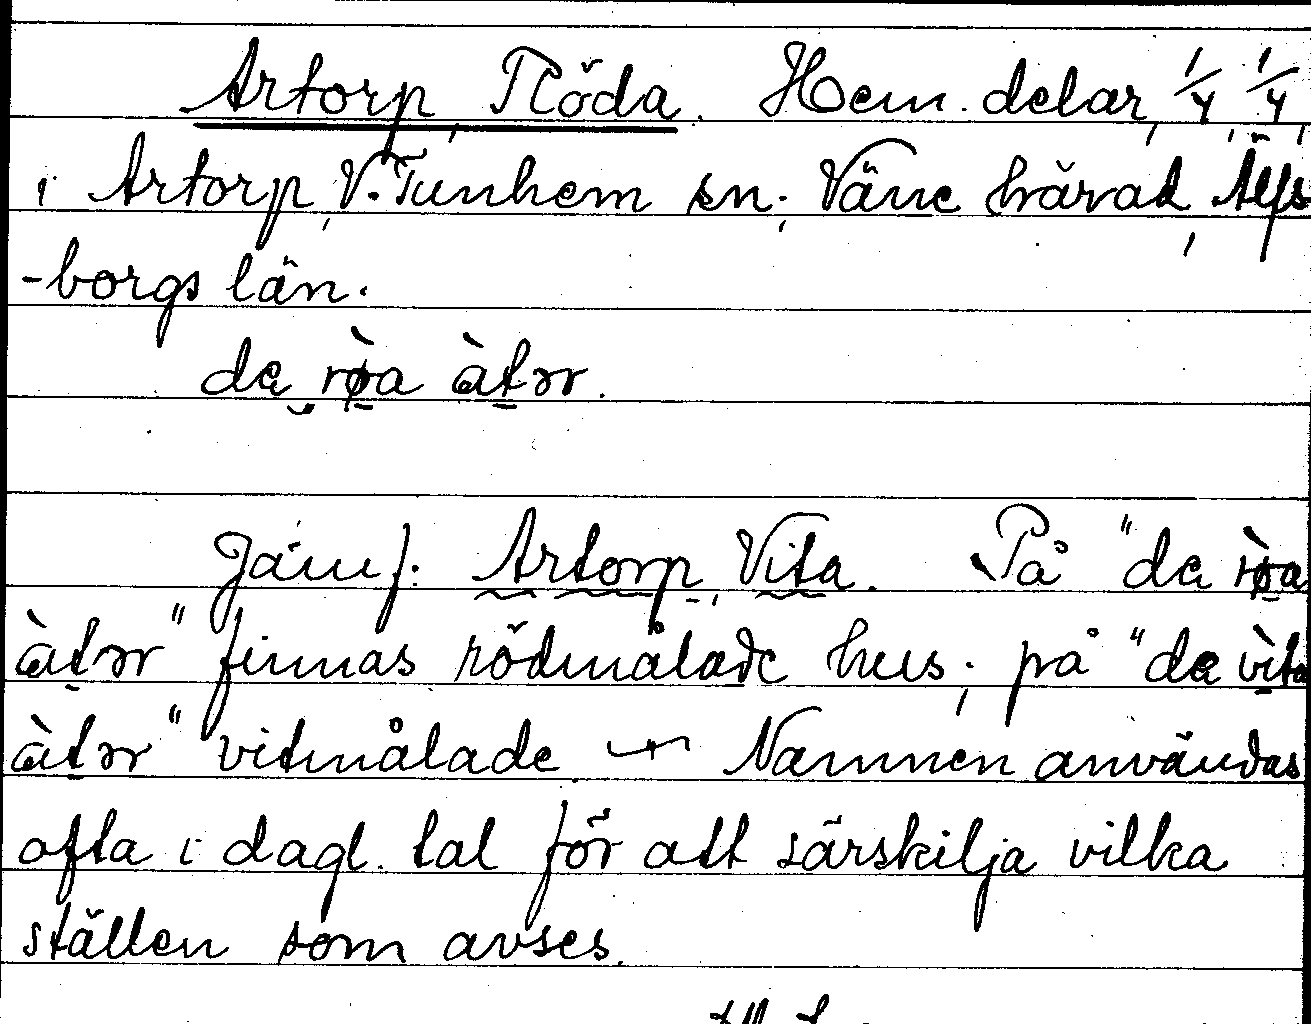 Artorp, Röda. Hem. delar, 1/4, 1/4,
i Artorp, V. Tunhem sn; Väne härad, Älfs
-borgs län.
de røa àtər.
Jämf. Artorp, Vita. På "de røa
àtər" finnas rödmålade hus; på "de vita
àtər" vitmålade. — Namnen användas
ofta i dagl. tal för att särskilja vilka
ställen som avses.